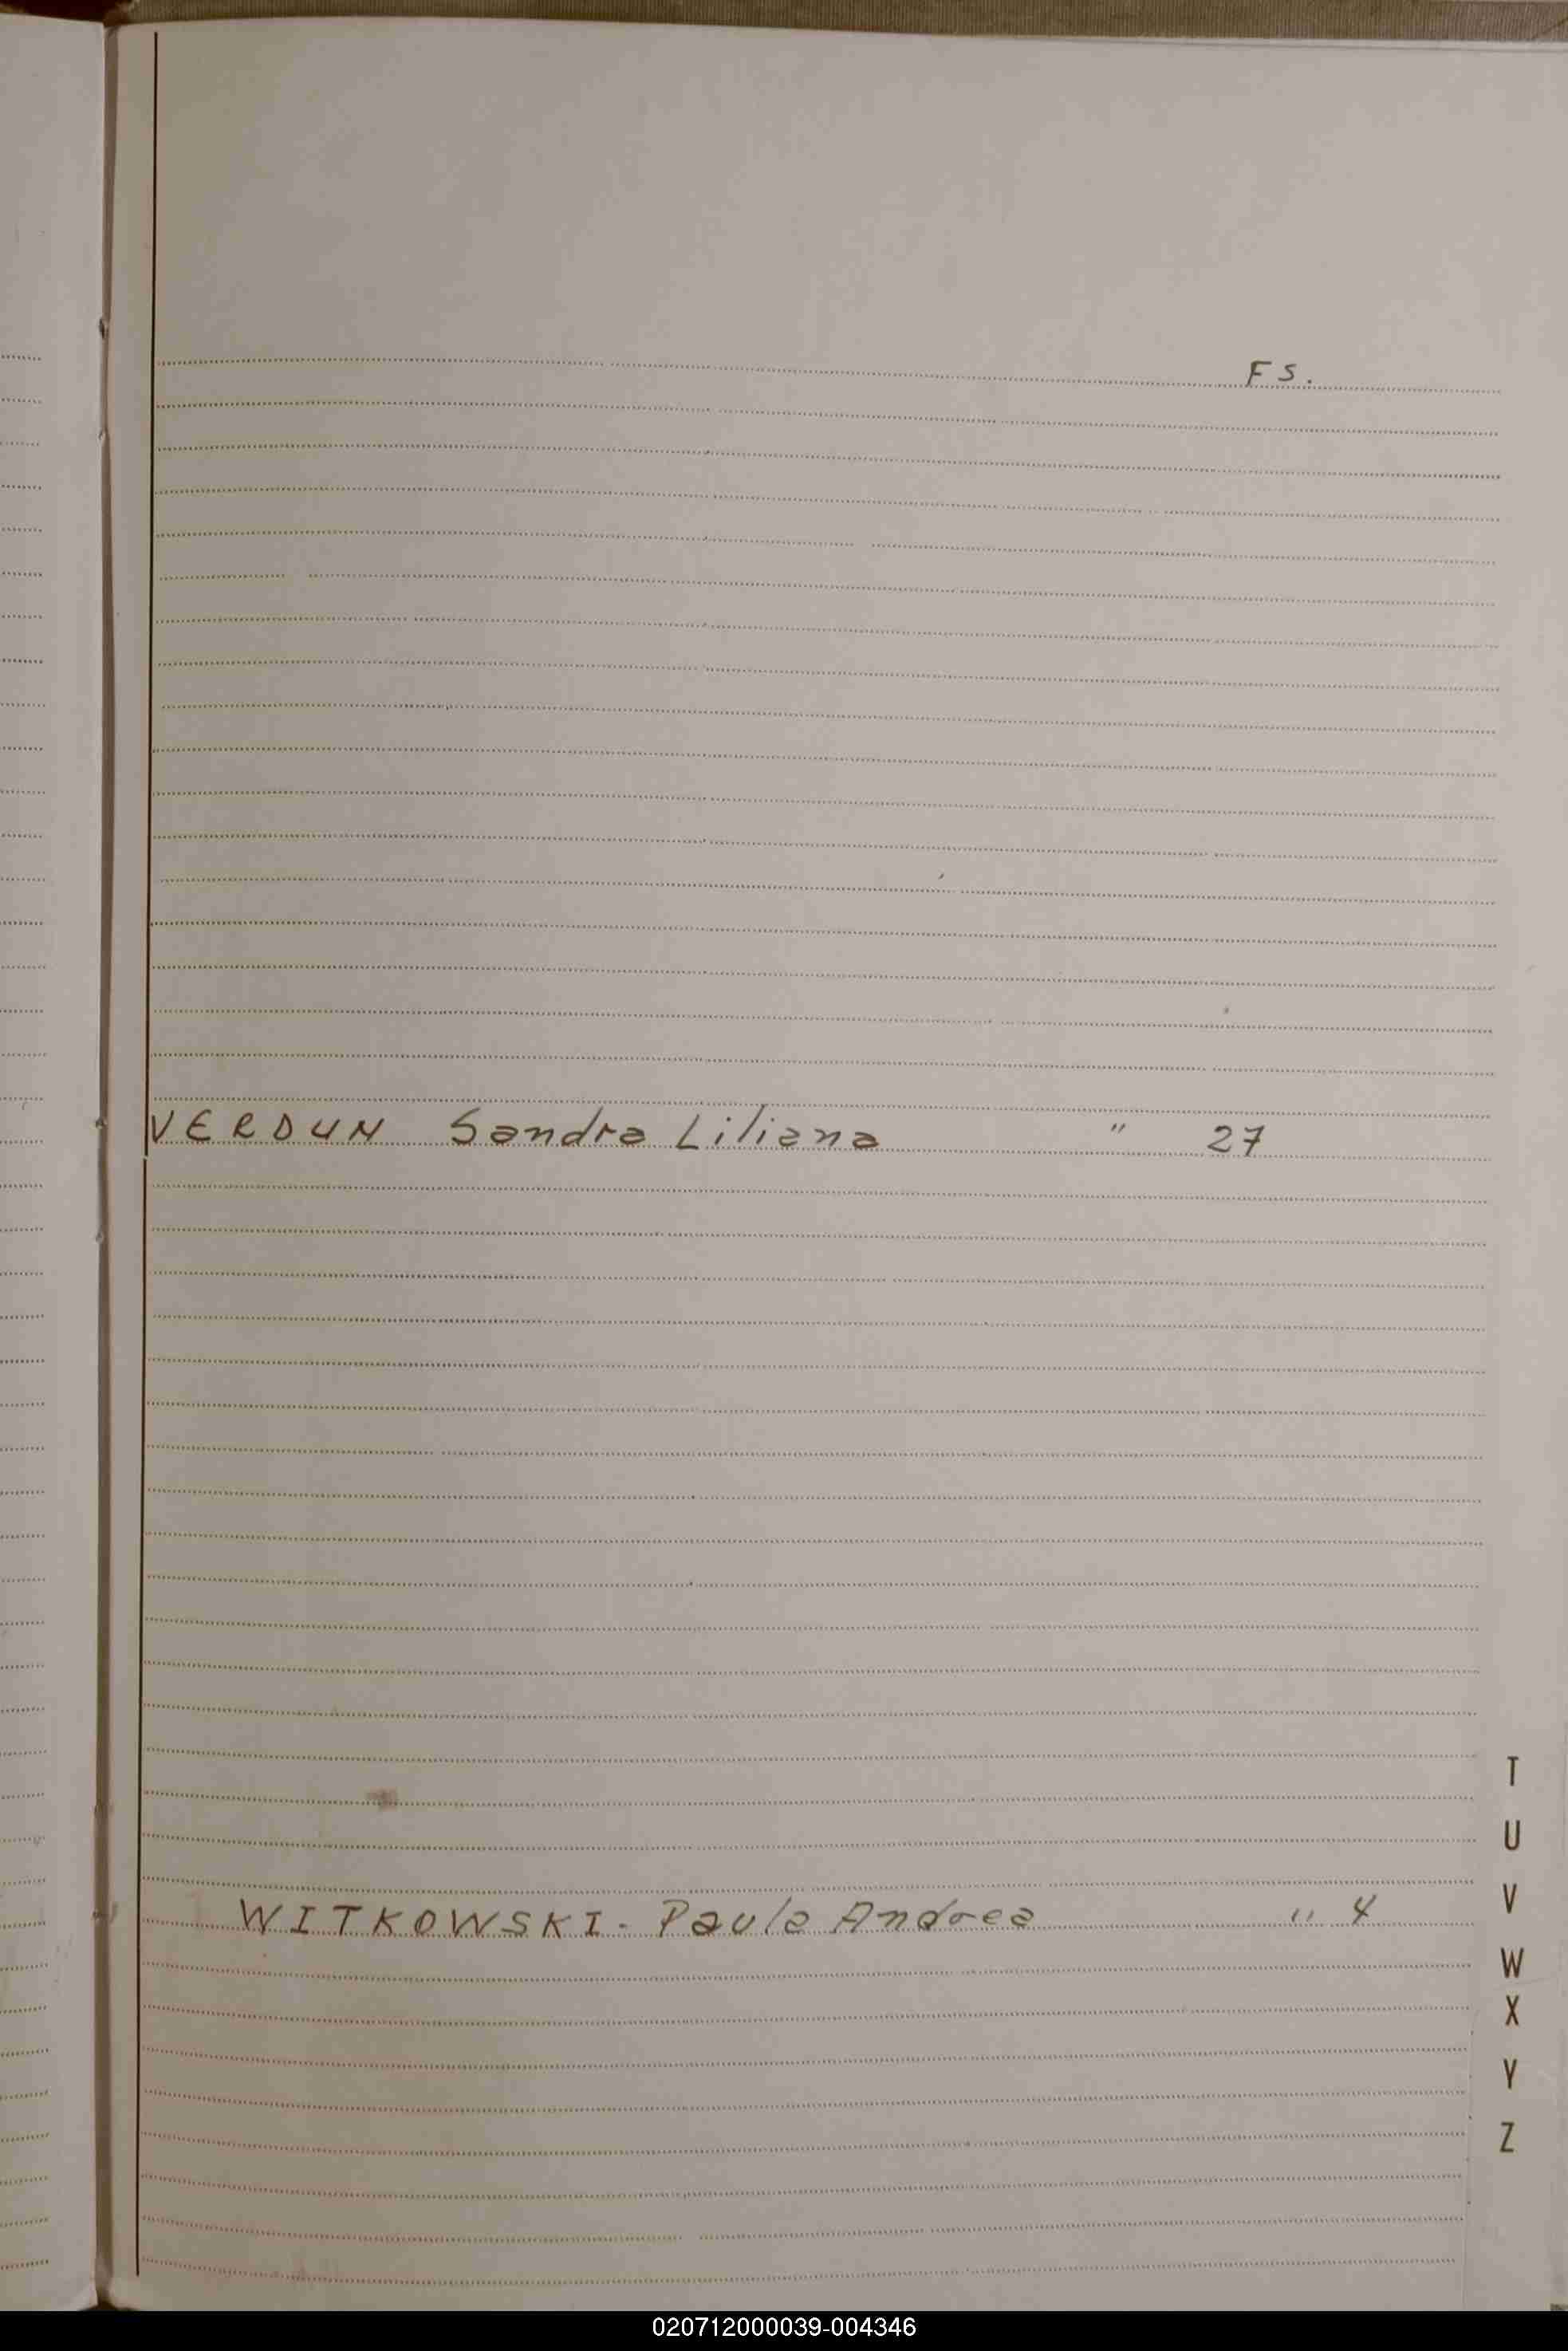 FS.
VERDUN Sandra Liliana " 27
WITKOWSKI - Paula Andrea " 4
T
U
V
W
X
Y
Z
020712000039-004346